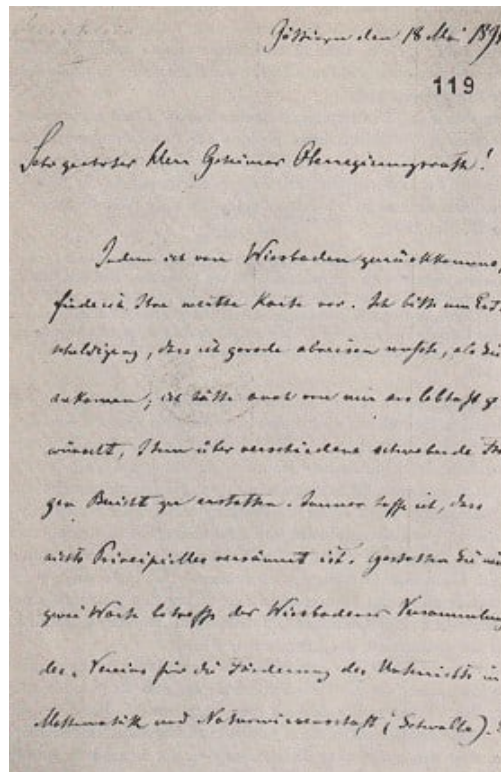 Göttingen den 18 Mai 189
119
Sehr geehrter Herr Geheimer Oberregierungsrath!
Indem ich von Wiesbaden zurückkomme,
finde ich Ihre werthe Karte vor. Ich bitte um Ent-
schuldigung, dass ich gerade abreisen musste, als Sie
ankamen; ich hätte auch von mir aus lebhaft ge
wünscht, Ihnen über verschiedene schwebende Fra
gen Bericht zu erstatten. Immer hoffe ich, dass
nichts Principielles versäumt ist. Gestatten Sie mir
zwei Worte betreffs der Wiesbadener Versammlung
des Vereins für die Förderung des Unterrichts in
Mathematik und Naturwissenschaft (Schwalbe).